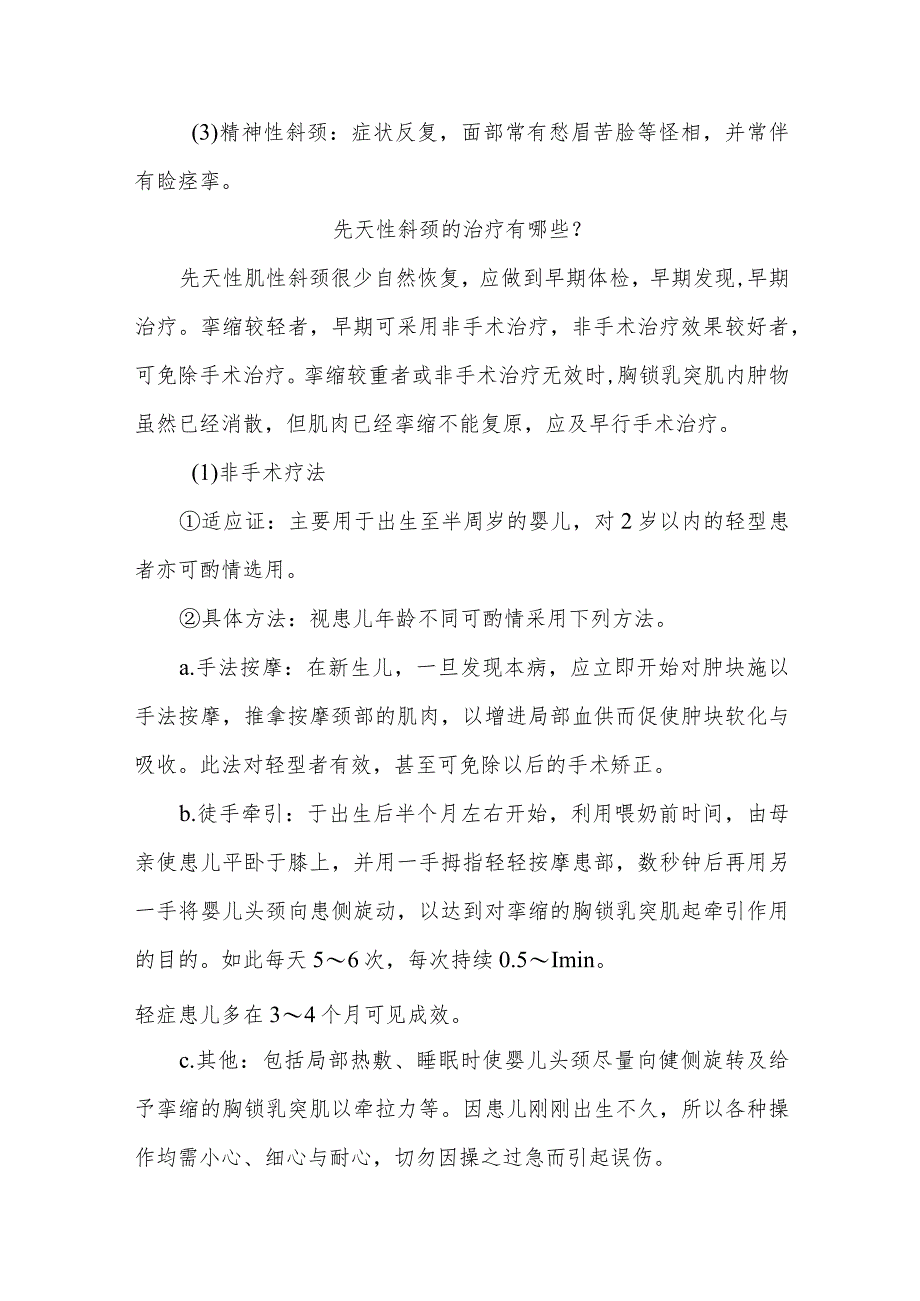 (3)精神性斜颈：症状反复，面部常有愁眉苦脸等怪相，并常伴
有睑痉挛。
先天性斜颈的治疗有哪些？
先天性肌性斜颈很少自然恢复，应做到早期体检，早期发现,早期
治疗。挛缩较轻者，早期可采用非手术治疗，非手术治疗效果较好者，
可免除手术治疗。挛缩较重者或非手术治疗无效时,胸锁乳突肌内肿物
虽然已经消散，但肌肉已经挛缩不能复原，应及早行手术治疗。
(1)非手术疗法
①适应证：主要用于出生至半周岁的婴儿，对 2 岁以内的轻型患
者亦可酌情选用。
②具体方法：视患儿年龄不同可酌情采用下列方法。
a.手法按摩：在新生儿，一旦发现本病，应立即开始对肿块施以
手法按摩，推拿按摩颈部的肌肉，以增进局部血供而促使肿块软化与
吸收。此法对轻型者有效，甚至可免除以后的手术矫正。
b.徒手牵引：于出生后半个月左右开始，利用喂奶前时间，由母
亲使患儿平卧于膝上，并用一手拇指轻轻按摩患部，数秒钟后再用另
一手将婴儿头颈向患侧旋动，以达到对挛缩的胸锁乳突肌起牵引作用
的目的。如此每天 5～6 次，每次持续 0.5～Imin。
轻症患儿多在 3～4 个月可见成效。
c.其他：包括局部热敷、睡眠时使婴儿头颈尽量向健侧旋转及给
予挛缩的胸锁乳突肌以牵拉力等。因患儿刚刚出生不久，所以各种操
作均需小心、细心与耐心，切勿因操之过急而引起误伤。